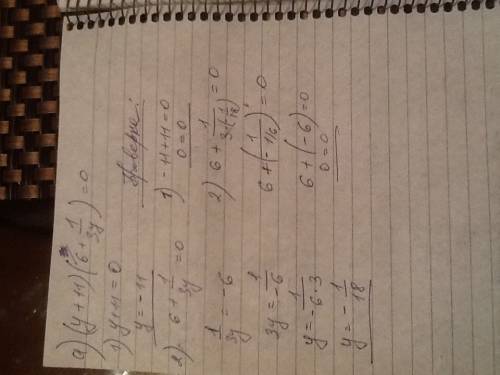 а) (y+11)(6+1/3y)=0
1) y+11=0
y=-11
2) 6+1/3y=0
1/3y=-6
3y=1/-6
y=1/-6·3
y=-1/18
Проверка:
1) -11+11=0
0=0
2) 6+1/3·(-1/18)=0
6+(1/-1/6)=0
6+(-6)=0
0=0